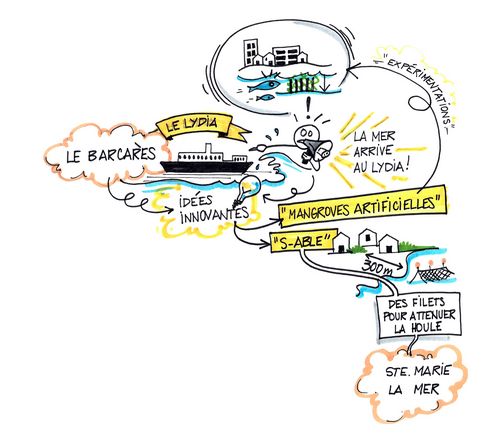 "EXPÉRIMENTATIONS"
LE LYDIA
LE BARCARÈS
LA MER
ARRIVE
AU LYDIA!
IDÉES
INNOVANTES
"MANGROVES ARTIFICIELLES"
"S-ABLE"
300m
DES FILETS
POUR ATTÉNUER
LA HOULE
STE. MARIE
LA MER